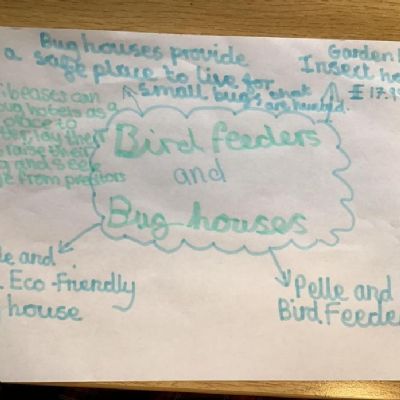 Bug houses provide
a safe place to live for
small bugs, that
are humbold.
Garden
Insect ho
£17.9
ibeases can
bug hotels as a
place to
lay their
raise their
g and seek
from
Bird feeders
and
Bug houses
le and
Eco-Friendly
house
Pelle and
Bird Feede